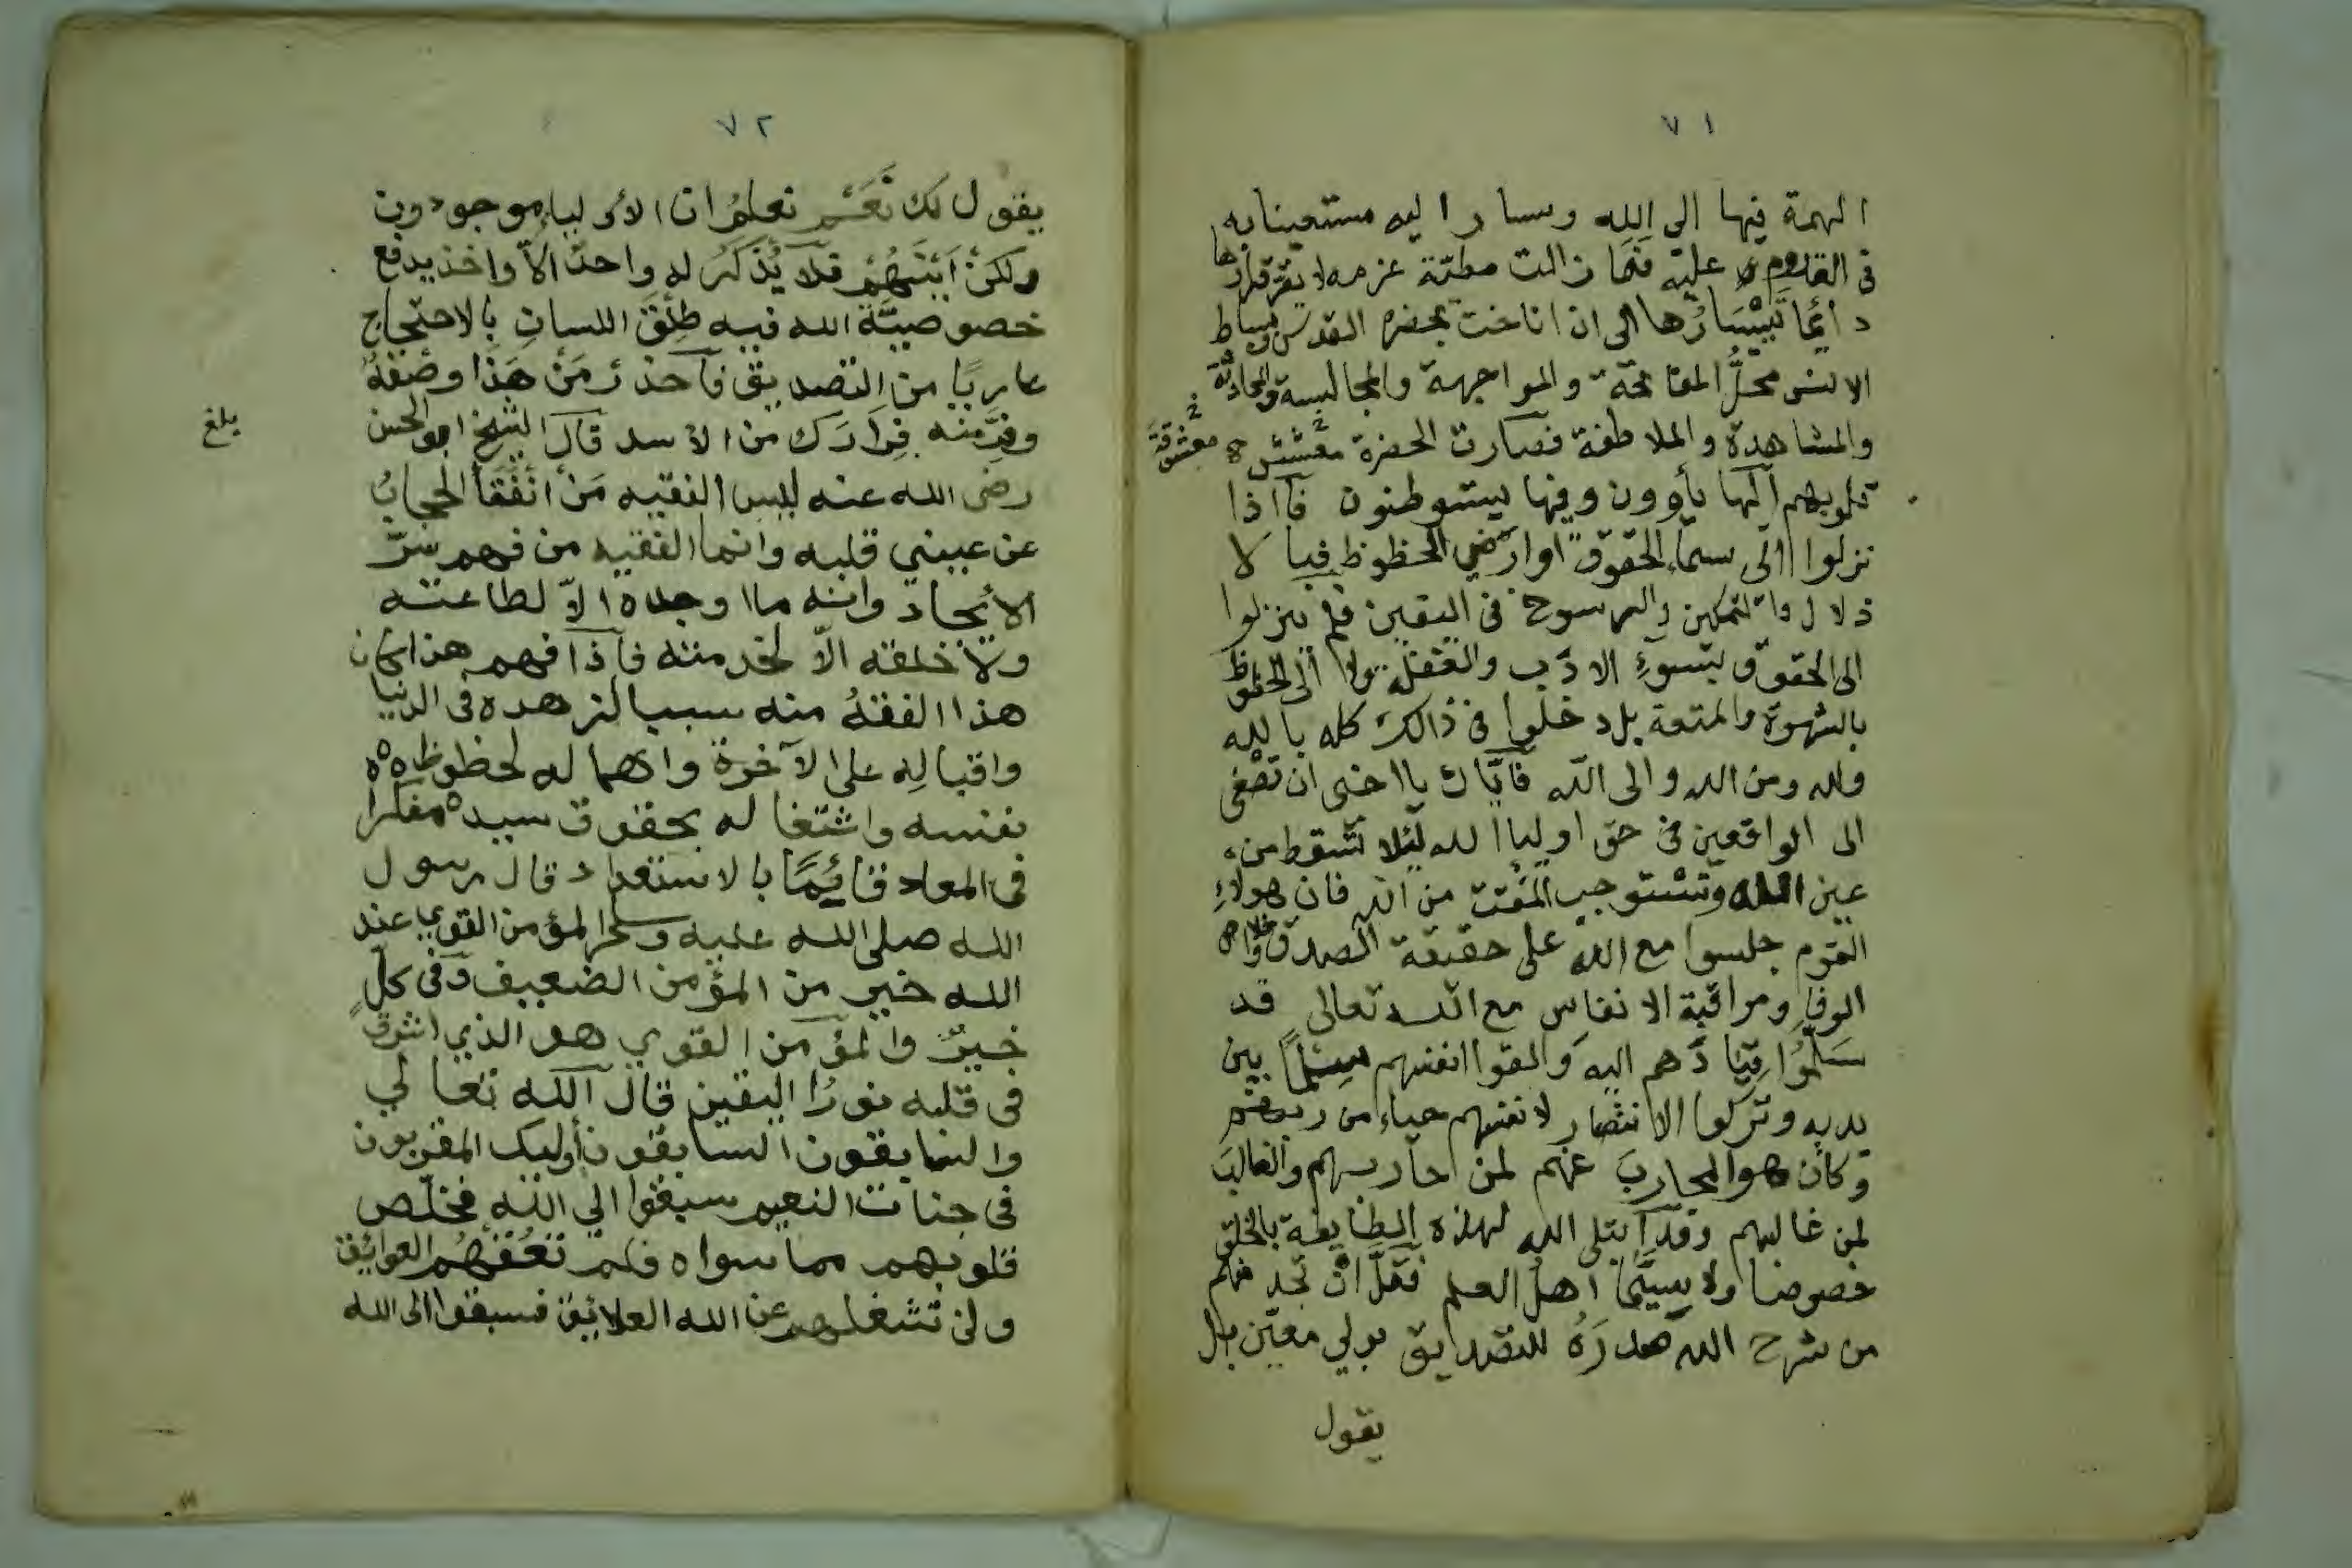 ٧١
الهمة فيها الى الله وسار اليه مستعينا به
فى القدوم عليه فما زالت مطية عزمه لا يقر قرارها
دائما تسيارها الى ان اناخت بحضرة القدس وبساط
الانس محل المفاتحة والمواجهة والمجالسة والمحادثة
والمشاهدة والملاطفة فصارت الحضرة معشش
معشوقة
قلوبهم اليها يأوون وفيها يستوطنون فاذا
نزلوا الى سماء الحقوق او ارض الحظوظ فبا لا
ذلال والتمكين والرسوخ فى اليقين فلم ينزلوا
الى الحقوق بسوء الادب والغفلة ولا الى الحظوظ
بالشهوة والمتعة بل دخلوا فى ذالك كله بالله
ولله ومن الله والى الله فاياك يا اخى ان تصغى
الى الواقعين فى حق اوليا الله لئلا تسقط من
عين الله وتستوجب المقت من الله فان هولاء
القوم جلسوا مع الله على حقيقة الصدق واخلاص
الوفا ومراقبة الانفاس مع الله تعالى قد
سلموا قيادهم اليه والقوا انفسهم سلما بين
يديه وتركوا الانتصار لانفسهم حياء من ربهم
وكان هو المحارب عنهم لمن حاربهم والغالب
لمن غالبهم وقد ابتلى الله لهذه الطايفة بالخلق
خصوصا ولا سيما اهل العلم فقل ان تجد منهم
من شرح الله صدره للتصديق بولي معين بل
يقول
٧٢
يقول لك نعم نعلم ان الاوليا موجودون
ولكن اينهم فلا يذكر له واحد الا واخذ يدفع
خصوصية الله فيه طلق اللسان بالاحتجاج
عاريا من التصديق فاحذر من هذا وصفه
وفر منه فرارك من الاسد قال الشيخ ابو الحسن
بلغ
رضى الله عنه ليس الفقيه من انفقأ الحجاب
عن عيني قلبه وانما الفقيه من فهم سر
الايجاد وانه ما اوجده الا لطاعته
ولا خلقه الا لخدمته فاذا فهم هذا كان
هذا الفقه منه سببا لزهده فى الدنيا
واقباله على الآخرة واهماله لحظوظ
نفسه واشتغاله بحقوق سيده مفكرا
فى المعاد قائما بالاستعداد قال رسول
الله صلى الله عليه وسلم المؤمن القوي عند
الله خير من المؤمن الضعيف وفى كل
خير والمؤمن القوي هو الذي اشرق
فى قلبه نور اليقين قال الله تعالي
والسابقون السابقون أوليك المقربون
فى جنات النعيم سبقوا الي الله فخلص
قلوبهم مما سواه فلم تعقهم العوائق
ولن تشغلهم عن الله العلائق فسبقوا الى الله